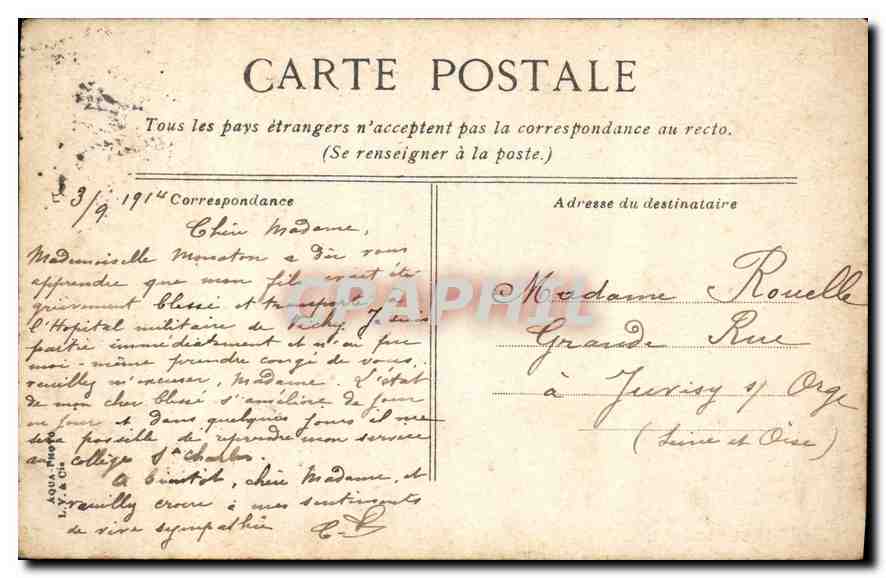 CARTE POSTALE
Tous les pays étrangers n'acceptent pas la correspondance au recto.
(Se renseigner à la poste.)
3/9 1914 Correspondance
Chère Madame,
Mademoiselle a dû vous
apprendre que mon fils avait été
grièvement blessé et transporté à
l'Hopital militaire de Vichy. Je suis
partie immédiatement et n'ai pu
moi-même prendre congé de vous,
veuillez m'excuser, Madame. L'état
de mon cher blessé s'améliore de jour
en jour et dans quelques jours il me
sera possible de reprendre mon service
au collège St Charles.
A bientôt, chère Madame, et
veuillez croire à mes sentiments
de vive sympathie
AQUA-PHOTO
L. V. & Cie
Adresse du destinataire
Madame Rouelle
Grande Rue
à Juvisy s/ Orge
(Seine et Oise)
CPAPHIL